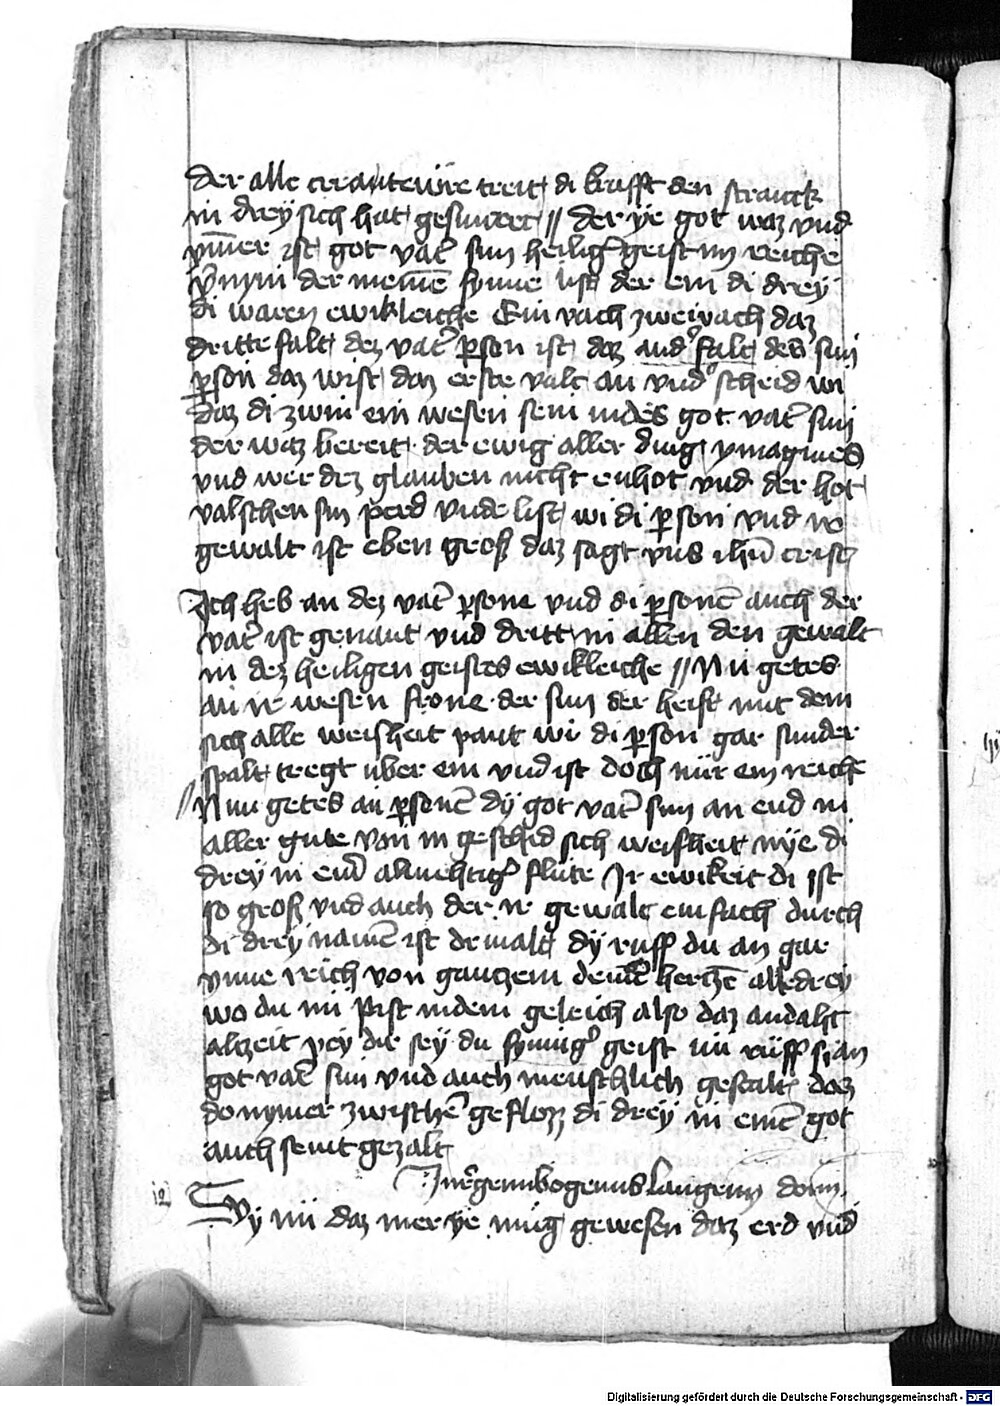 der alle creautewre treit di krafft den strauck
in dreÿ sich hat gesundert // der ye got waz vnd
ymer ist got vat' sun heilig' geist im reiche
der meine synne list der ein di drey
di waren ewikleiche Ein vach zweivach daz
dritte falt dez vat' person ist daz and' falt des sun
person daz wist daz erste valt an vnd'scheid wi
daz di zwin ein wesen sein got vat' sun
der waz bereit der ewig aller ding ymagines
vnd wer dez glauben nicht enhot vnd der hot
valschen sin vnde list wi di person vnd ir
gewalt ist eben groß daz sagt vns crist
Ich heb an dez vat' persone vnd di persone auch der
vat' ist genant vnd dritt in allen den gewalt
in dez heiligen geistes ewikleiche // Nu getes
an ir wesen frone der sun der heist mit dem
sich alle weisheit paut wi di person gar sunder
spalt tregt uber ein vnd ist doch nur ein reich
// Nu getes an persone dÿ got vat' sun an end in
aller gute von in geschid sich weisheit nye di
drey in almechtig' flute Ir ewikeit di ist
so groß vnd auch der ir gewalt einfach durch
di drey name ist drivalt dÿ ruff du an gar
ynne reich von gantzem hertze alle drey
wo du nu pist indem geleich also daz andaht
altzeit pey dir sey du synnig' geist nu rüff si an
got vat' sun vnd auch menschlich gestalt daz
do nymer zwische gefloz di drey in eine got
auch seint gezalt
In regenbogenns langenn donn
12 Wÿ nu daz mer ye mug gewesen daz erd vnd
Digitalisierung gefördert durch die Deutsche Forschungsgemeinschaft - DFG